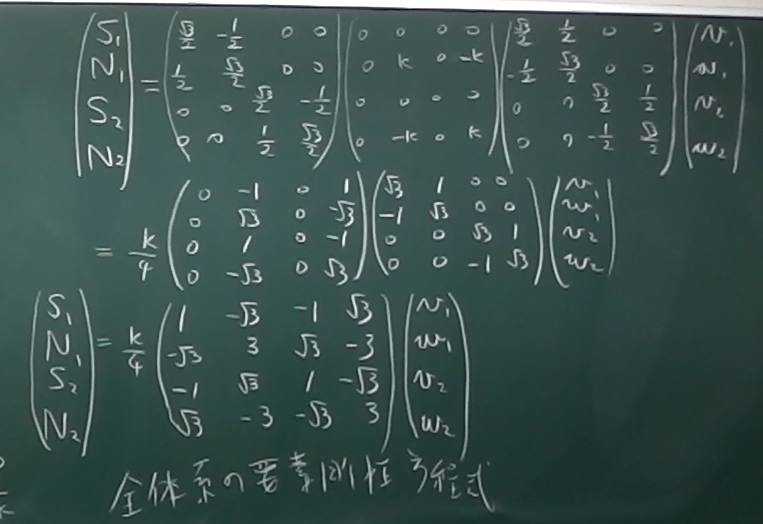 (S₁ N₁ S₂ N₂) = (√3/2 -1/2 0 0; 1/2 √3/2 0 0; 0 0 √3/2 -1/2; 0 0 1/2 √3/2) (0 0 0 0; 0 k 0 -k; 0 0 0 0; 0 -k 0 k) (√3/2 1/2 0 0; -1/2 √3/2 0 0; 0 0 √3/2 1/2; 0 0 -1/2 √3/2) (v₁ w₁ v₂ w₂)
= k/4 (0 -1 0 1; 0 √3 0 -√3; 0 1 0 -1; 0 -√3 0 √3) (√3 1 0 0; -1 √3 0 0; 0 0 √3 1; 0 0 -1 √3) (v₁ w₁ v₂ w₂)
(S₁ N₁ S₂ N₂) = k/4 (1 -√3 -1 √3; -√3 3 √3 -3; -1 √3 1 -√3; √3 -3 -√3 3) (v₁ w₁ v₂ w₂)
全体系の要素剛性方程式